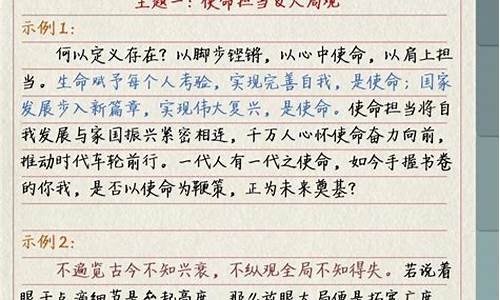 主题一：使命担当&大局观
示例1：
何以定义存在？以脚步铿锵，以心中使命，以肩上担
当。生命赋予每个人考验，实现完善自我，是使命；国家
发展步入新篇章，实现伟大复兴，是使命。使命担当将自
我发展与家国振兴紧密相连，千万人心怀使命奋力向前，
推动时代车轮前行。一代人有一代之使命，如今手握书卷
的你我，是否以使命为鞭策，正为未来奠基？
示例2：
不遍览古今不知兴衰，不纵观全局不知得失。若说着
眼于点滴细节是垒起高度，那么放眼大局便是拓宽广度。